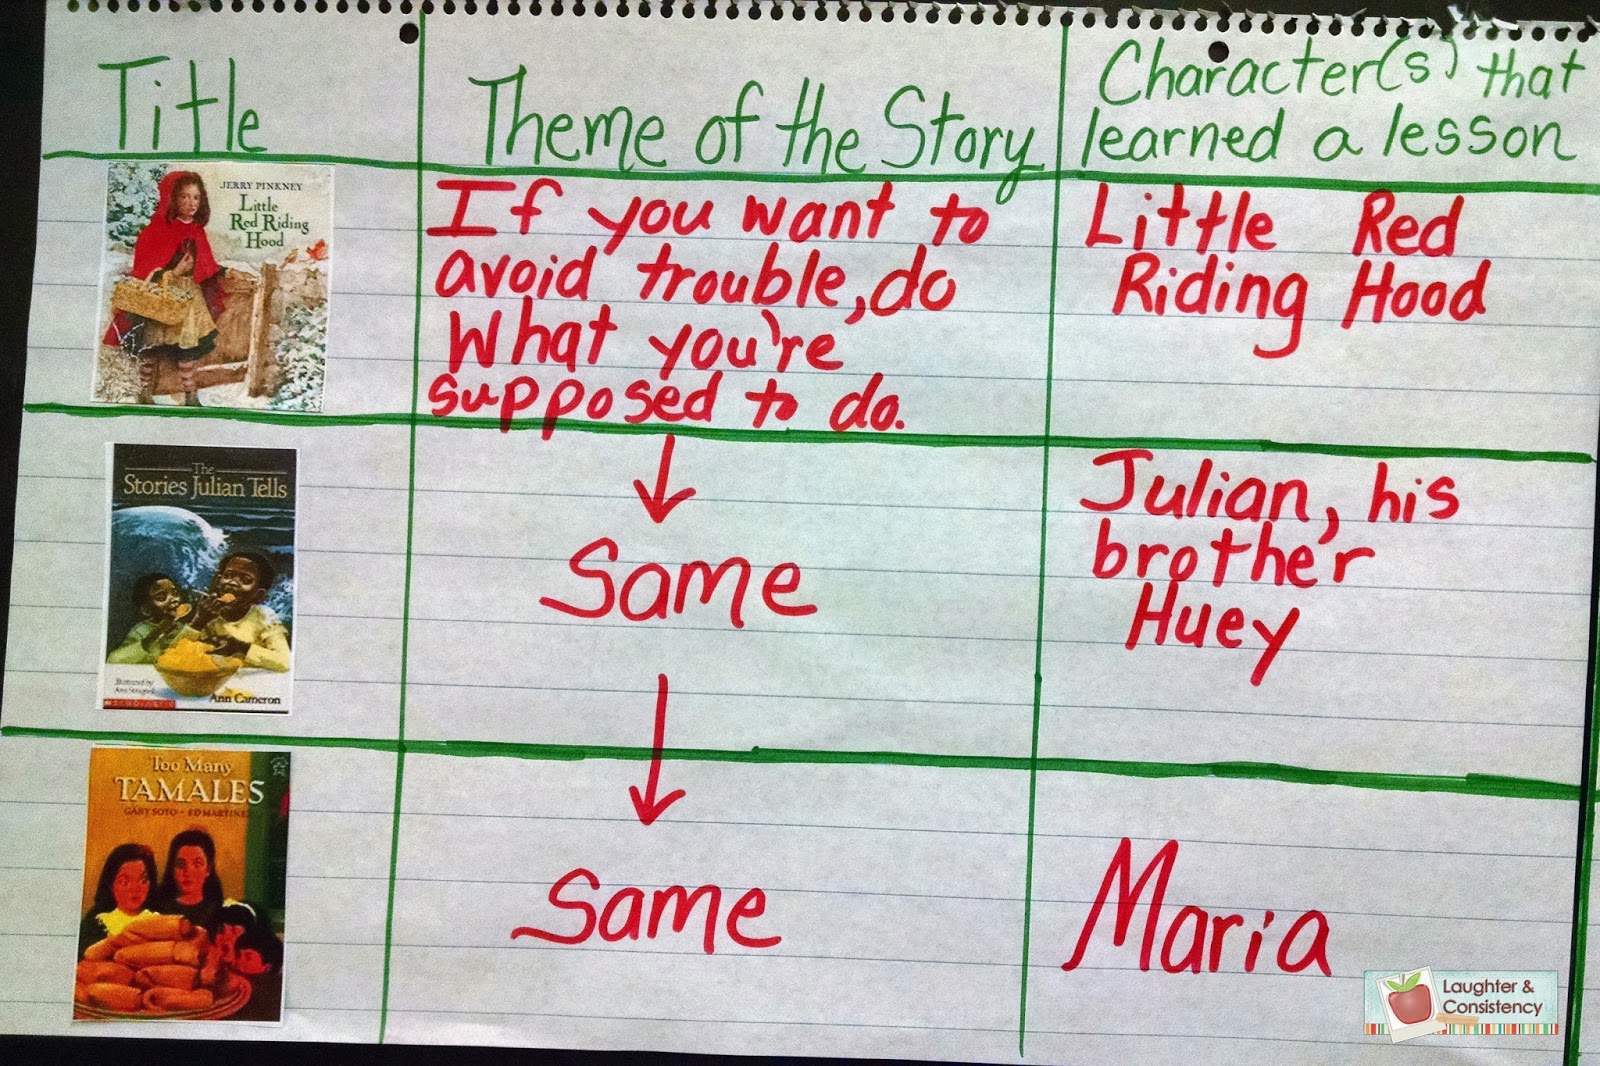 Title
Theme of the Story
Character(s) that
learned a lesson
JERRY PINKNEY
Little
Red Riding
Hood
If you want to
avoid trouble, do
What you're
supposed to do.
Little Red
Riding Hood
The
Stories Julian Tells
Illustrated by
Ann Strugnell
SCHOLASTIC
Ann Cameron
Same
Julian, his
brother
Huey
Too Many
TAMALES
GARY SOTO • ED MARTINEZ
Same
Maria
Laughter &
Consistency